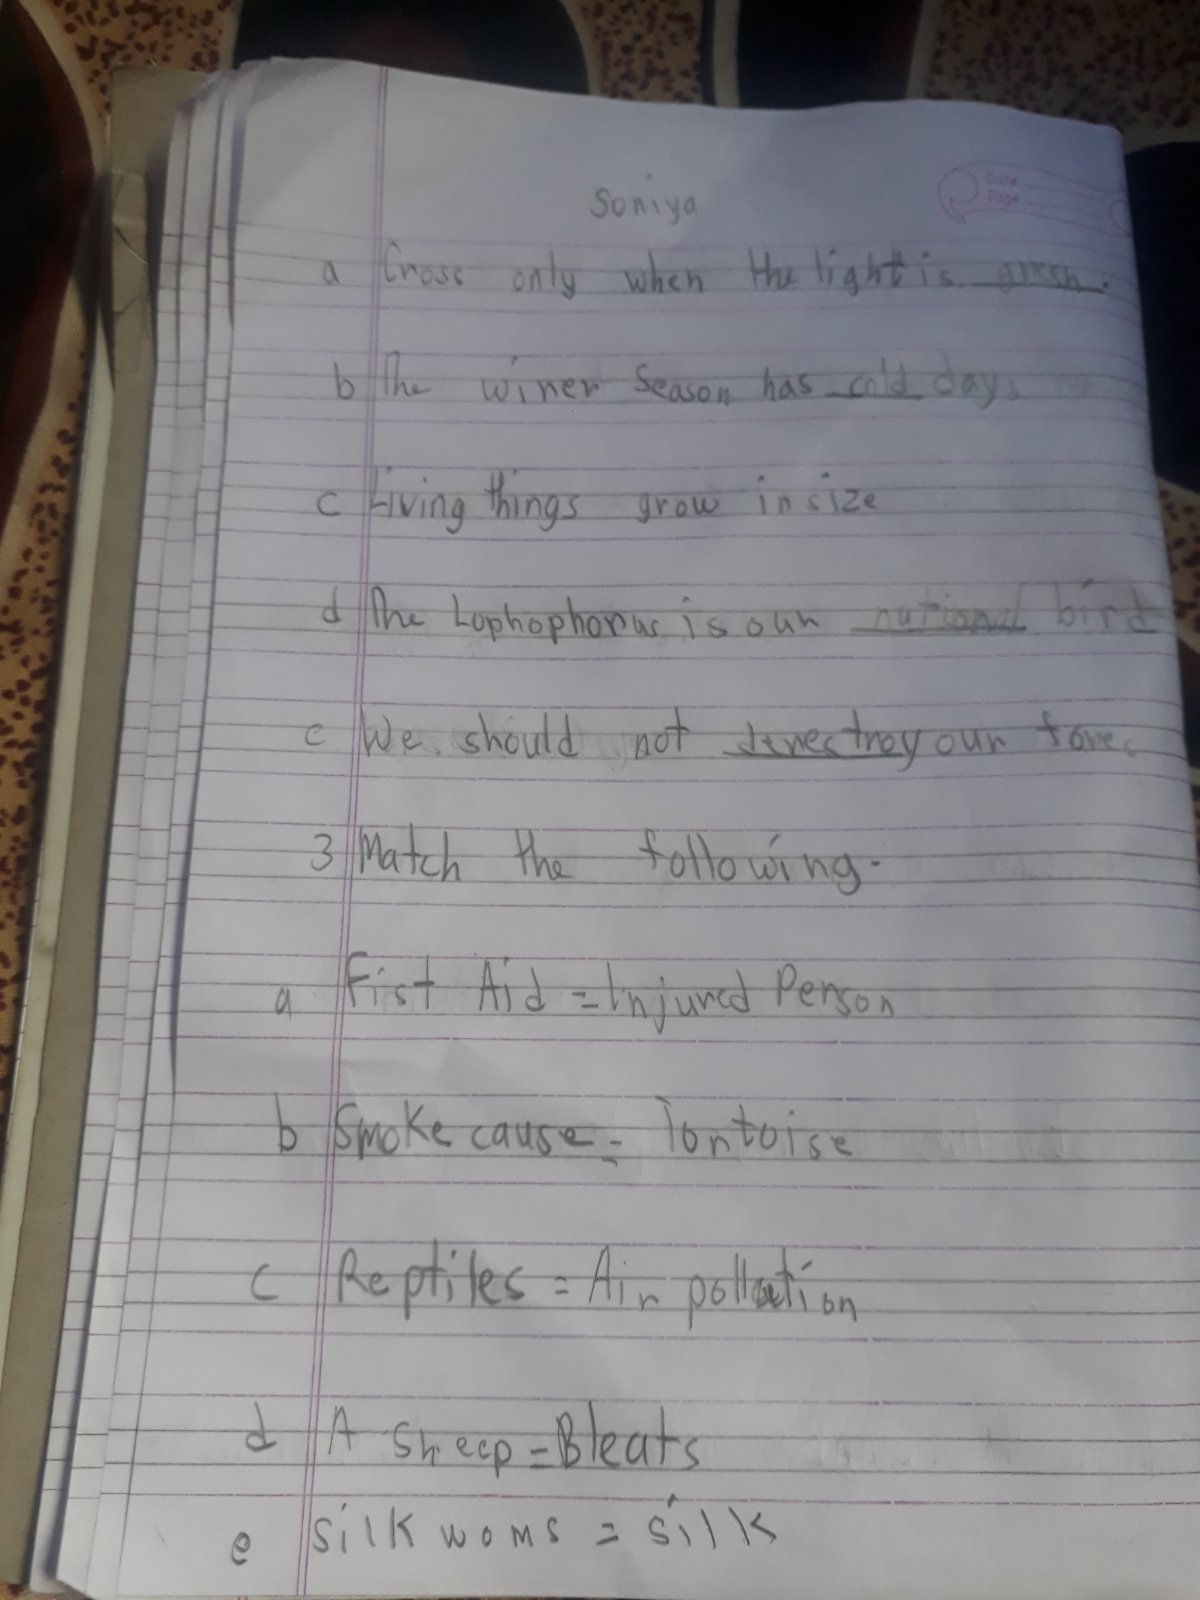 Soniya
Date
Page
a Cross only when the light is green.
b The winer Season has cold days
c Living things grow in size
d The Lophophorus is our national bird
e We should not our
3 Match the following.
a Fist Aid = Injured Person
b Smoke cause = Tortoise
c Reptiles = Air pollution
d A Sheep = Bleats
e silk woms = silk